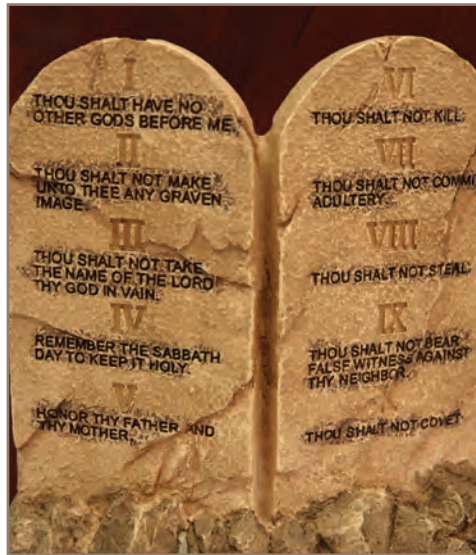 I
THOU SHALT HAVE NO
OTHER GODS BEFORE ME.
II
THOU SHALT NOT MAKE
UNTO THEE ANY GRAVEN
IMAGE.
III
THOU SHALT NOT TAKE
THE NAME OF THE LORD
THY GOD IN VAIN.
IV
REMEMBER THE SABBATH
DAY TO KEEP IT HOLY.
V
HONOR THY FATHER AND
THY MOTHER.
VI
THOU SHALT NOT KILL.
VII
THOU SHALT NOT COMMI
ADULTERY.
VIII
THOU SHALT NOT STEAL.
IX
THOU SHALT NOT BEAR
FALSE WITNESS AGAINST
THY NEIGHBOR.
THOU SHALT NOT COVET